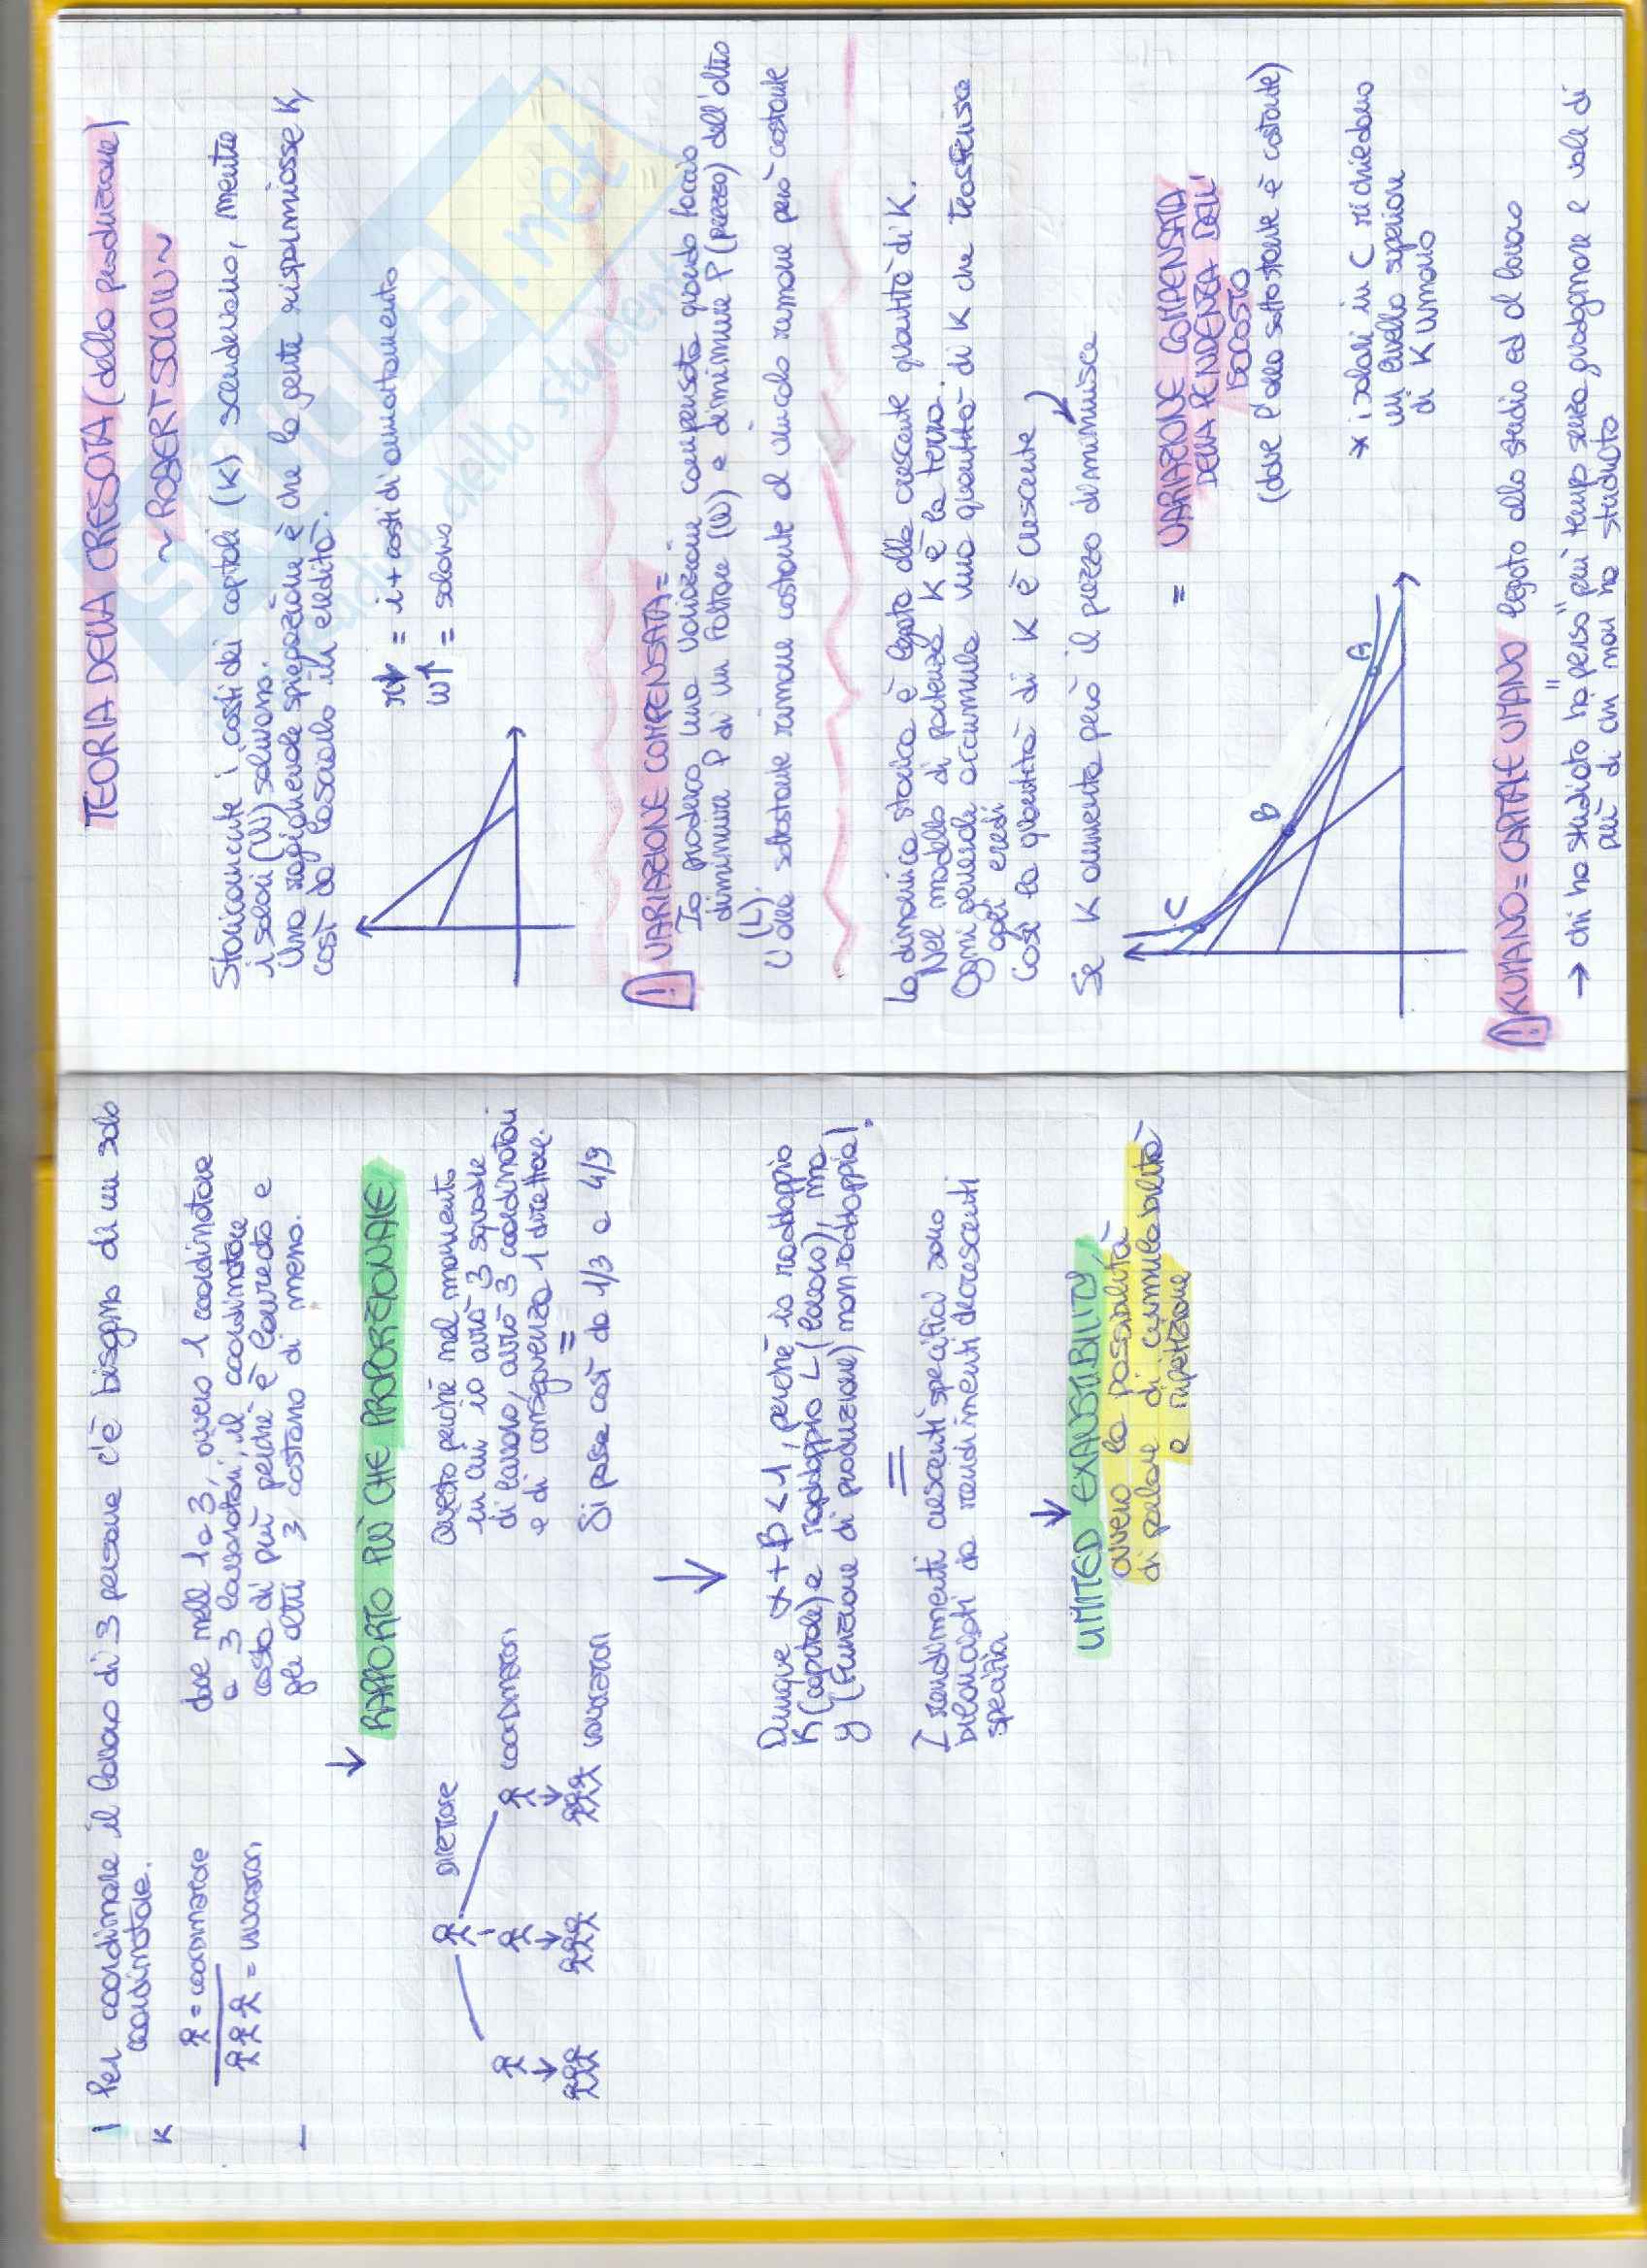 Per coordinare il lavoro di 3 persone c'è bisogno di un solo
coordinatore.
K
= coordinatore
= lavoratori
dove nell' 1 a 3, ovvero 1 coordinatore
e 3 lavoratori, il coordinatore
costa di più perché è laureato e
gli altri 3 costano di meno.
↓
RAPPORTO PIÙ CHE PROPORZIONALE
DIRETTORE
COORDINATORI
LAVORATORI
Questo perché nel momento
in cui io avrò 3 squadre
di lavoro, avrò 3 coordinatori
e di conseguenza 1 direttore.
=
Si passa così da 1/3 a 4/9
↓
Dunque α + B < 1, perché io raddoppio
K (capitale) e raddoppio L (lavoro), ma
y (funzione di produzione) non raddoppia!
=
I rendimenti crescenti specifici sono
bilanciati da rendimenti decrescenti
specifici
↓
LIMITED EXAUSTIBILITY
ovvero la possibilità
di parlare di cumulabilità
e ripetizione
TEORIA DELLA CRESCITA (della produzione)
~ ROBERT SOLOW ~
Storicamente i costi dei capitali (K) scendevano, mentre
i salari (W) salivano.
Una ragionevole spiegazione è che la gente risparmiasse K,
così da lasciarlo in eredità.
r↓ = i + costi di ammortamento
w↑ = salario
! VARIAZIONE COMPENSATA =
Io produco una variazione compensata quando faccio
diminuire P di un fattore (W) e diminuire P (prezzo) dell'altro
(L).
L'area sottostante rimane costante al vincolo rimane però costante
La dinamica storica è legata alla crescente quantità di K.
Nel modello di partenza K è la terra.
Ogni generale accumula una quantità di K che trasferisce
agli eredi
Così la quantità di K è crescente
Se K aumenta però il prezzo diminuisce
C
B
A
= VARIAZIONE COMPENSATA
DELLA PENDENZA DELL'
ISOCOSTO
(dove l'area sottostante è costante)
* i salari in C richiedono
un livello superiore
di K umano
! KUMANO = CAPITALE UMANO legato allo studio ed al lavoro
→ chi ha studiato ha "perso" più tempo senza guadagnare e vale di
più di chi non ha studiato
skuola.net